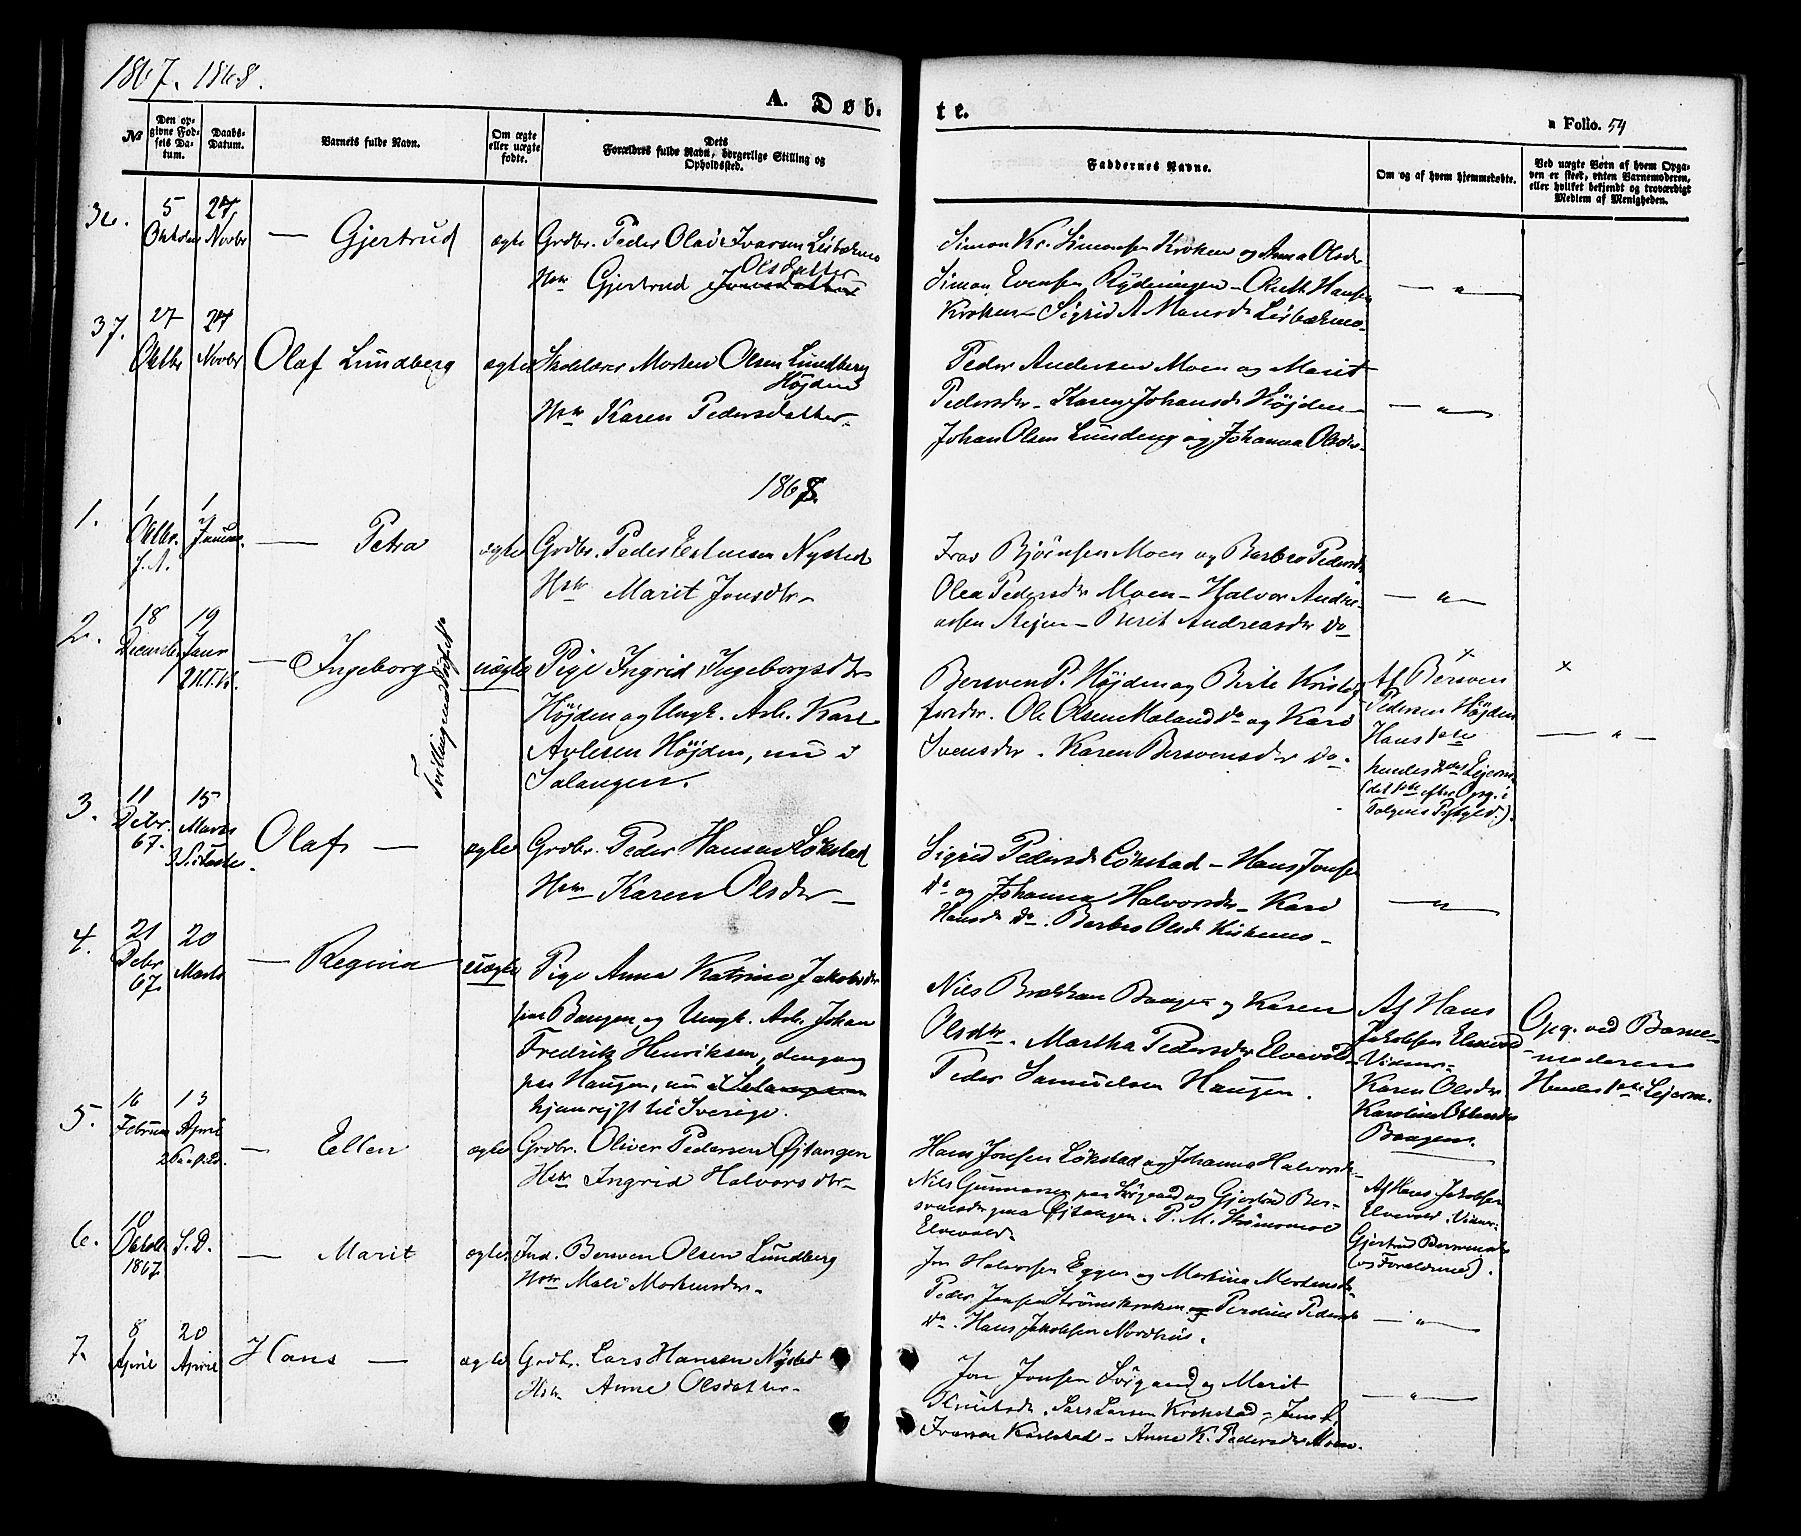 1867. 1868.
A. Døb-
te.
Folio. 54
No
Den opgivne Fødsels Datum.
Daabs-Datum.
Barnets fulde Navn.
Om ægte eller uægte fødte.
Dets Forældres fulde Navn, borgerlige Stilling og Opholdssted.
Faddernes Navne.
Om og af hvem hjemmedøbte.
Ved uægte Børn af hvem Opgaven er skeet, enten Barnemoderen, eller hvilket bekjendt og troværdigt Medlem af Menigheden.
36.
5 Oktober
24 Novbr
— Gjertrud
ægte
Grdbr. Peder Olai Ivarsen
Olsdatter
Hstr Gjertrud
Simon Kr. Simonsen Kroken og Anna Olsdr
Simon Evensen Rydningen – Hansen
Kroken – Sigrid A Monsdr
— " —
37.
27 Oktbr
24 Novbr
Olaf Lundberg
ægte
Skolelærer Morten Olsen Lundberg
Højden
Hstr Karen Pedersdatter –
Peder Andersen Moen og Marit
Pedersdr – Karen Johansdr Højden –
Johan Olsen og Johanna Olsdr –
— " —
1868.
1.
1 Oktbr. f.A.
1 Januar.
— Petra
ægte
Grdbr. Peder Estensen Nysted
Hstr Marit Jonsdtr –
Bjørnsen Moen og Barbro Pedersdr
Olea Pedersdr Moen – Halvor Andre-
assen – Berit Andreasdr Do
— " —
2.
18 December
19 Janr
— Ingeborg
Tvillingmoder
uægte
Pige Ingrid Ingeborgsdtr
Højden og Ungk. Arb.
Højden, nu i
Salangen.
Bersven P. Højden og Birte Kristof-
fersdr. Ole Olsen Moland Do og Kari
Svensdr. Karen Bersvensdr Do.
Af Bersven
Pedersen Højden
Hans 1ste
hendes 2det Lejerm.
(det 1ste efter Opg. i
×
— " —
3.
11 Decbr. 67.
15 Marts
Olaf —
ægte
Grdbr. Peder Hansen Løkstad
Hstr Karen Olsdr –
Sigrid Pedersdr Løkstad – Hans Jonsen
Do og Johanna Halvorsdr – Kari
Hansdr Do. Barbro Olsdr Kirkemo –
— " —
4.
21 Decbr 67.
20 Marts
— Regina
uægte
Pige Anna Katrine Jakobsdtr
paa Baugen og Ungk. Arb. Johan
Fredrik Henriksen, dengang
paa Haugen, nu i Salangen
hjemrejst til Sverige.
Nils Brækkan Baugen og Karen
Olsdtr. Martha Pedersdr Elvevold –
Peder Samuelsen Haugen.
Af Hans
Jakobsen Elvevold
Vidner –
Karen Olsdr
Karoline
Baugen.
Opg. ved Barne-
moderen
Hendes 1ste Lejerm.
5.
16 Februar
13 April
— Ellen
ægte
Grdbr. Oliver Pedersen Øjtangen
Hstr Ingrid Halvorsdtr –
Hans Jonsen Løkstad og Johanna Halvorsdr –
Nils Gunnarsen paa Sørgaard og Gjertrud Ber-
svensdr paa Øjtangen. P. M. Strømsmoe
Elvevold.
Af Hans Jakobsen
Elvevold. Vidner –
Gjertrud Bersvensdr
(og Forældrene).
6.
10 Oktobr 1867.
S. D.
— Marit
ægte
Ind. Bersven Olsen Lundberg
Hstr Mali Mortensdr –
Jon Halvorsen Eggen og Martina Mortensdr –
Peder Jensen Strømskroken og Perdine Pedersdr
Do. Hans Jakobsen Nordhus.
— " —
7.
8 April
20 April
Hans —
ægte
Grdbr. Lars Hansen Nysted
Hstr Anne Olsdatter –
Jon Jonsen Sørgaard og Marit
Knutsdr. Lars Larsen Krokstad –
Ivarson Karlstad – Anne K. Pedersdr Moen.
— " —